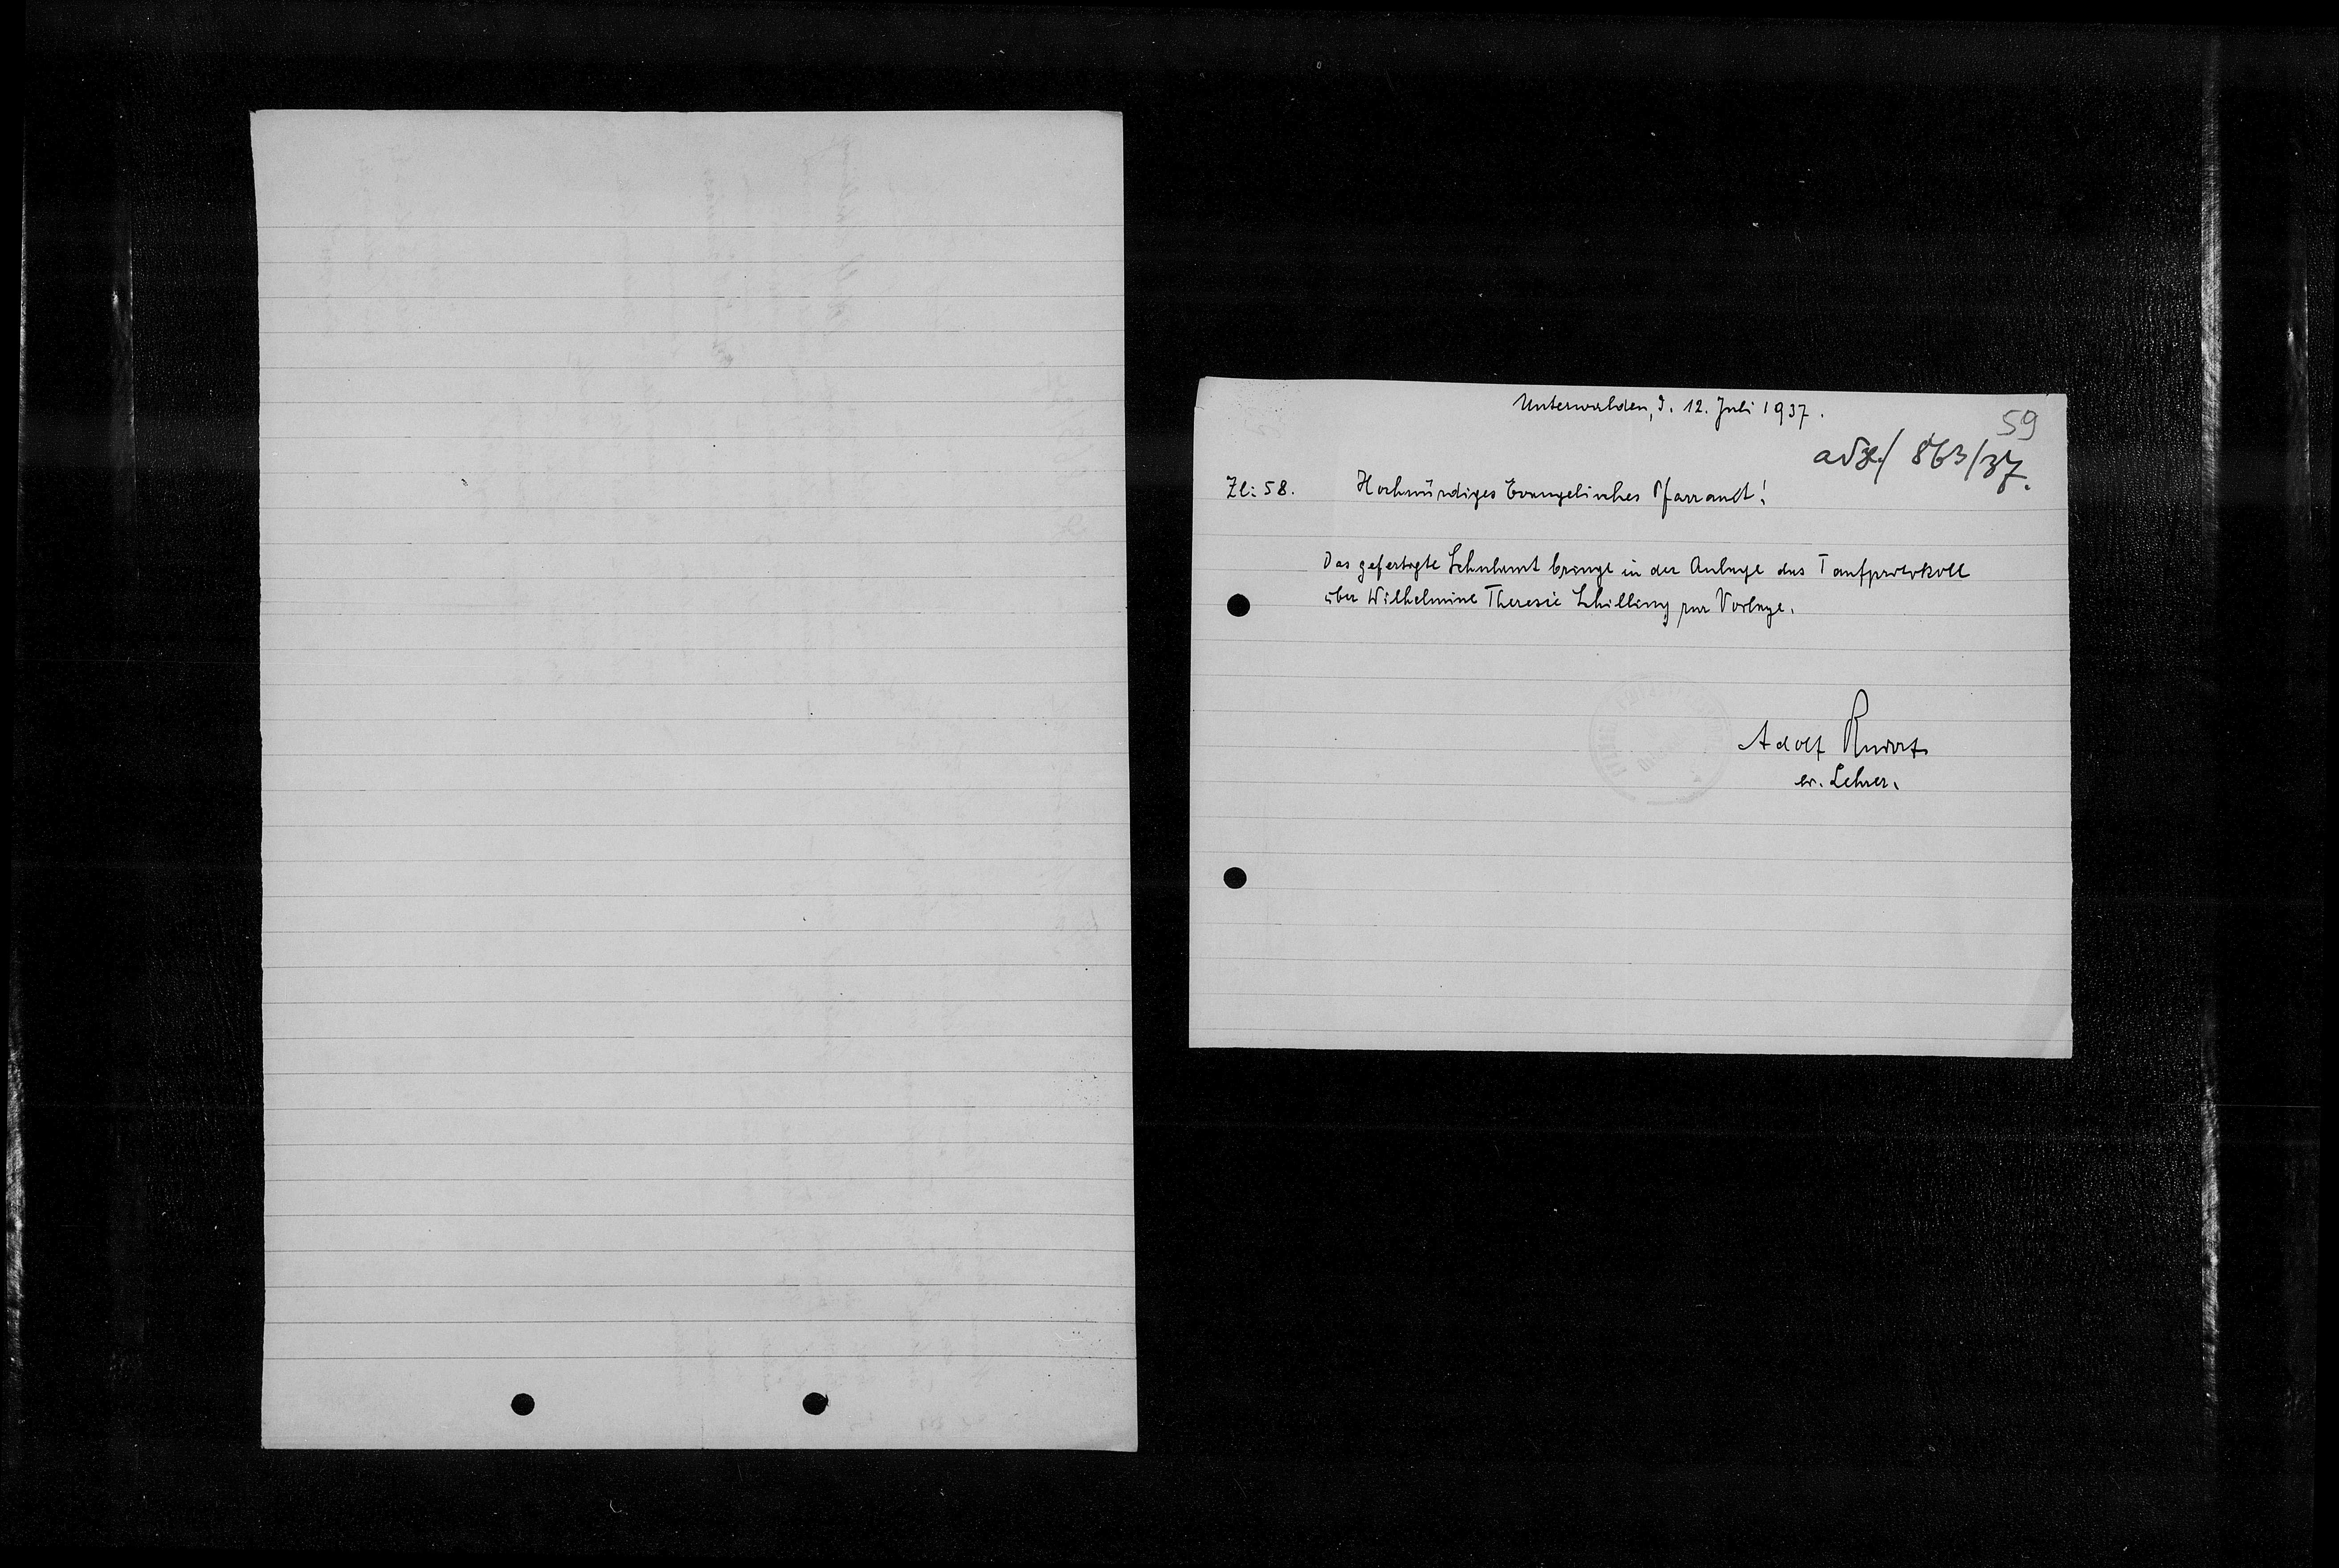 Unterwalden, d. 12. Juli 1937.
59
ad Zl./ 863/37.
Zl: 58. Hochwürdiges Evangelisches Pfarramt!
Das gefertigte Schulamt bringt in der Anlage das Taufprotokoll
über Wilhelmine Theresie Schilling zur Vorlage.
Adolf
ev. Lehrer.